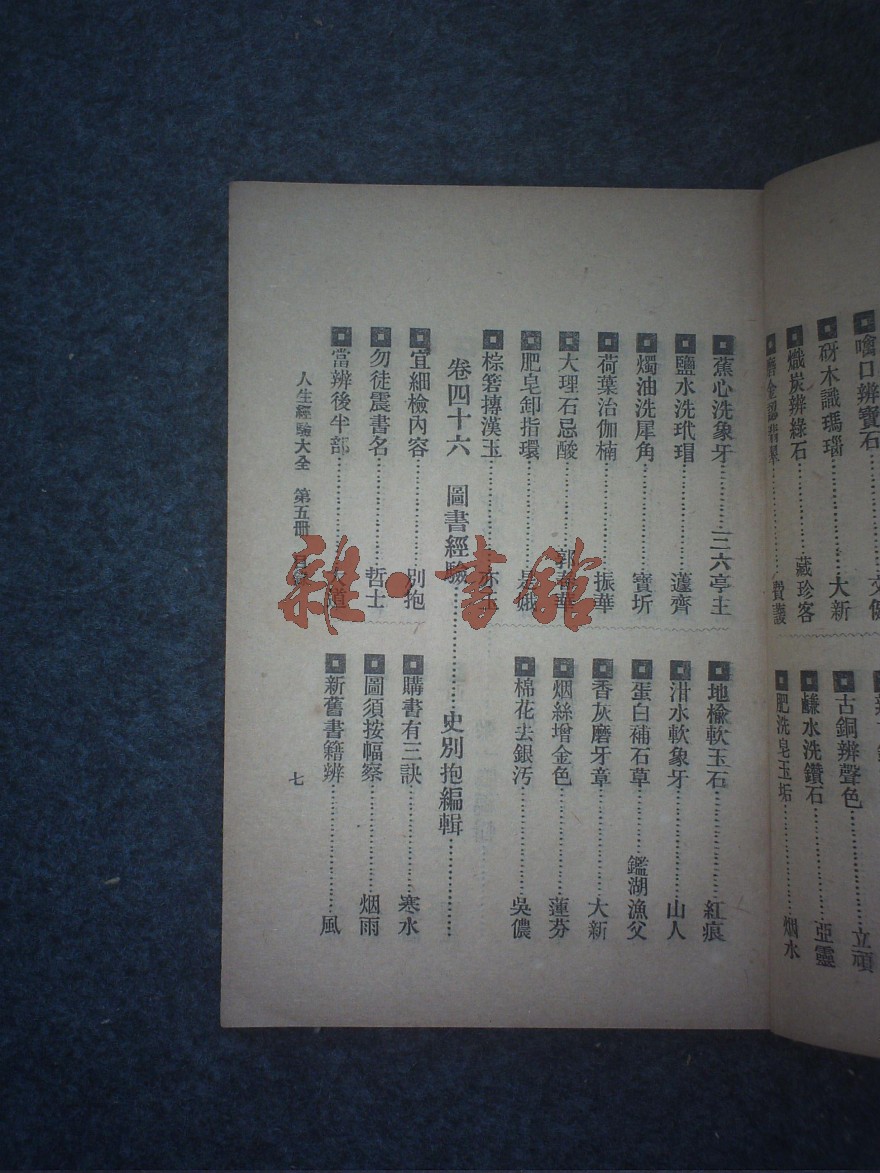 噙口辨寶石
砑木識瑪瑙……大新
熾炭辨綠石……藏珍客
古銅辨聲色……立頑
鹹水洗鑽石……亞靈
肥洗皂玉垢……烟水
蕉心洗象牙……二六亭主
鹽水洗玳瑁……蘧齊
燭油洗犀角……寶圻
荷葉治伽楠……振華
大理石忌酸……郭春華
肥皂卸指環……是娥
棕箬摶漢玉……亦玉
地榆軟玉石……紅痕
泔水軟象牙……山人
蛋白補石草……鑑湖漁父
香灰磨牙章……大新
烟絲增金色……蓮芬
棉花去銀汚……吳儂
卷四十六 圖書經驗……史別抱編輯……
宜細檢內容……別抱
勿徒震書名……哲士
當辨後半部……大道
購書有三訣……寒水
圖須按幅察……烟雨
新舊書籍辨……風
人生經驗大全 第五冊 目錄
七
雜·書館